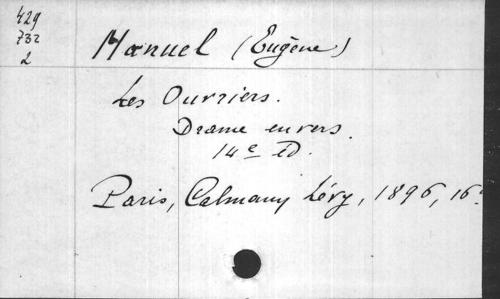 429
732
2
Manuel (Eugène)
Les Ouvriers.
Drame en vers.
14e Ed.
Paris, Calmann Lévy, 1896, 16°